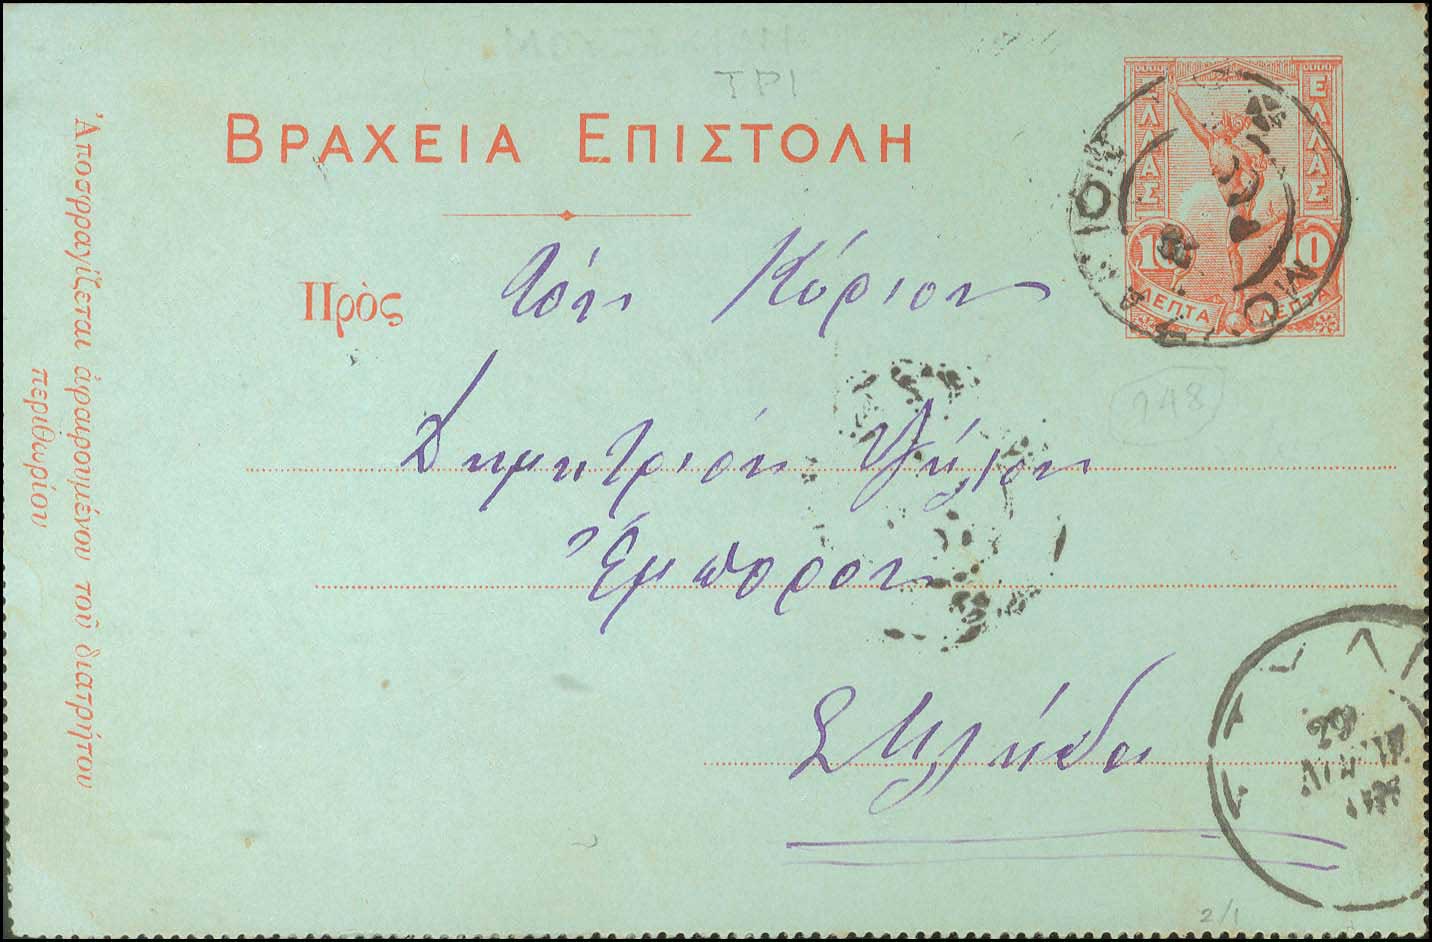 ΤΡΙ
ΒΡΑΧΕΙΑ ΕΠΙΣΤΟΛΗ
ΕΛΛΑΣ
ΕΛΛΑΣ
10
10
ΛΕΠΤΑ
ΛΕΠΤΑ
Πρὸς Τὸν Κύριον
248
Δημήτριον
Ἔμπορον
Στυλίδα
Ἀποσφραγίζεται ἀφαιρουμένου τοῦ διατρήτου
περιθωρίου
2/1